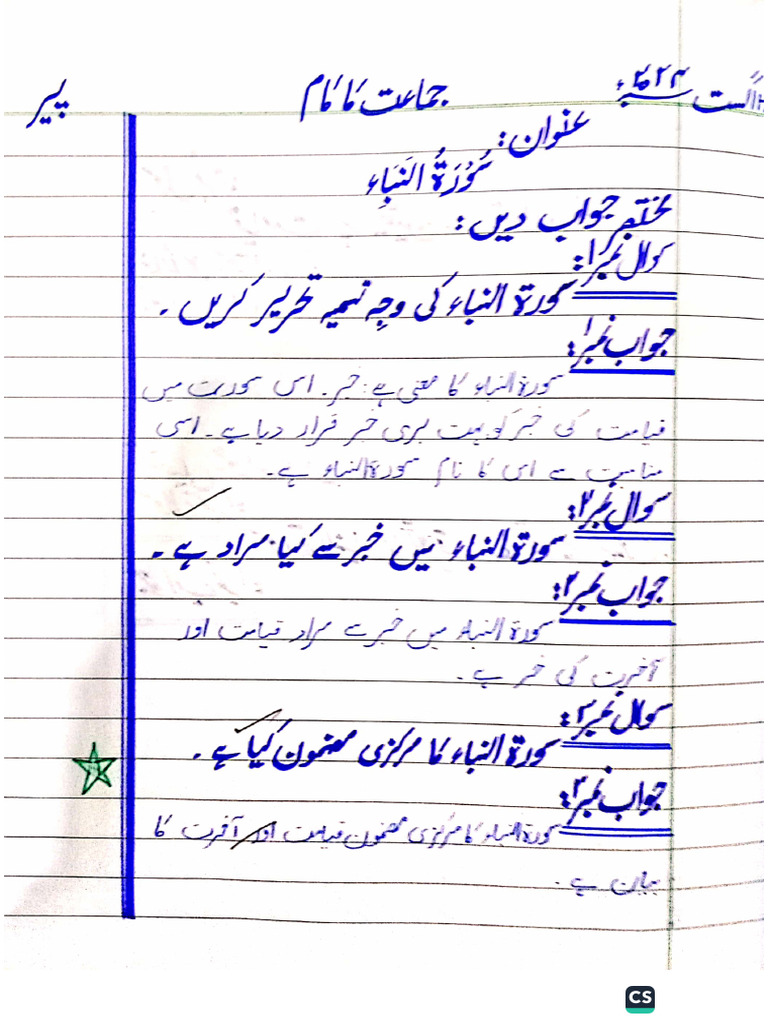 اگست ۲۰۲۳ء جماعت کا کام پیر
عنوان:
سُوْرَۃُ النَّبَاِء
مختصر جواب دیں:
سوال نمبر ۱:
سورۃ النباء کی وجہ تسمیہ تحریر کریں۔
جواب نمبر ۱:
سورۃ النباء کا معنی ہے: خبر۔ اس سورت میں
قیامت کی خبر کو بہت بڑی خبر قرار دیا ہے۔ اسی
مناسبت سے اس کا نام سورۃ النباء ہے۔
سوال نمبر ۲:
سورۃ النباء میں خبر سے کیا مراد ہے۔
جواب نمبر ۲:
سورۃ النباء میں خبر سے مراد قیامت اور
آخرت کی خبر ہے۔
سوال نمبر ۳:
سورۃ النباء کا مرکزی مضمون کیا ہے۔
جواب نمبر ۳:
سورۃ النباء کا مرکزی مضمون قیامت اور آخرت کا
بیان ہے۔
CS